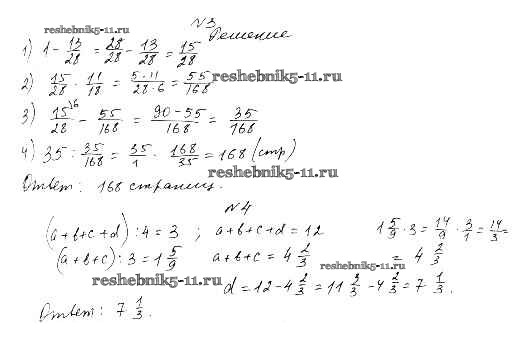 reshebnik5-11.ru
№3
Решение
1) 1 - 13/28 = 28/28 - 13/28 = 15/28
2) 15/28 · 11/18 = 5·11/28·6 = 55/168
reshebnik5-11.ru
3) 15/28 \6 - 55/168 = 90-55/168 = 35/168
4) 35 : 35/168 = 35/1 · 168/35 = 168 (стр)
reshebnik5-11.ru
Ответ: 168 страниц.
№4
(a+b+c+d) : 4 = 3 ; a+b+c+d = 12 1 5/9 · 3 = 14/9 · 3/1 = 14/3 =
(a+b+c) : 3 = 1 5/9 a+b+c = 4 2/3 = 4 2/3
reshebnik5-11.ru
reshebnik5-11.ru
d = 12 - 4 2/3 = 11 3/3 - 4 2/3 = 7 1/3.
Ответ: 7 1/3.